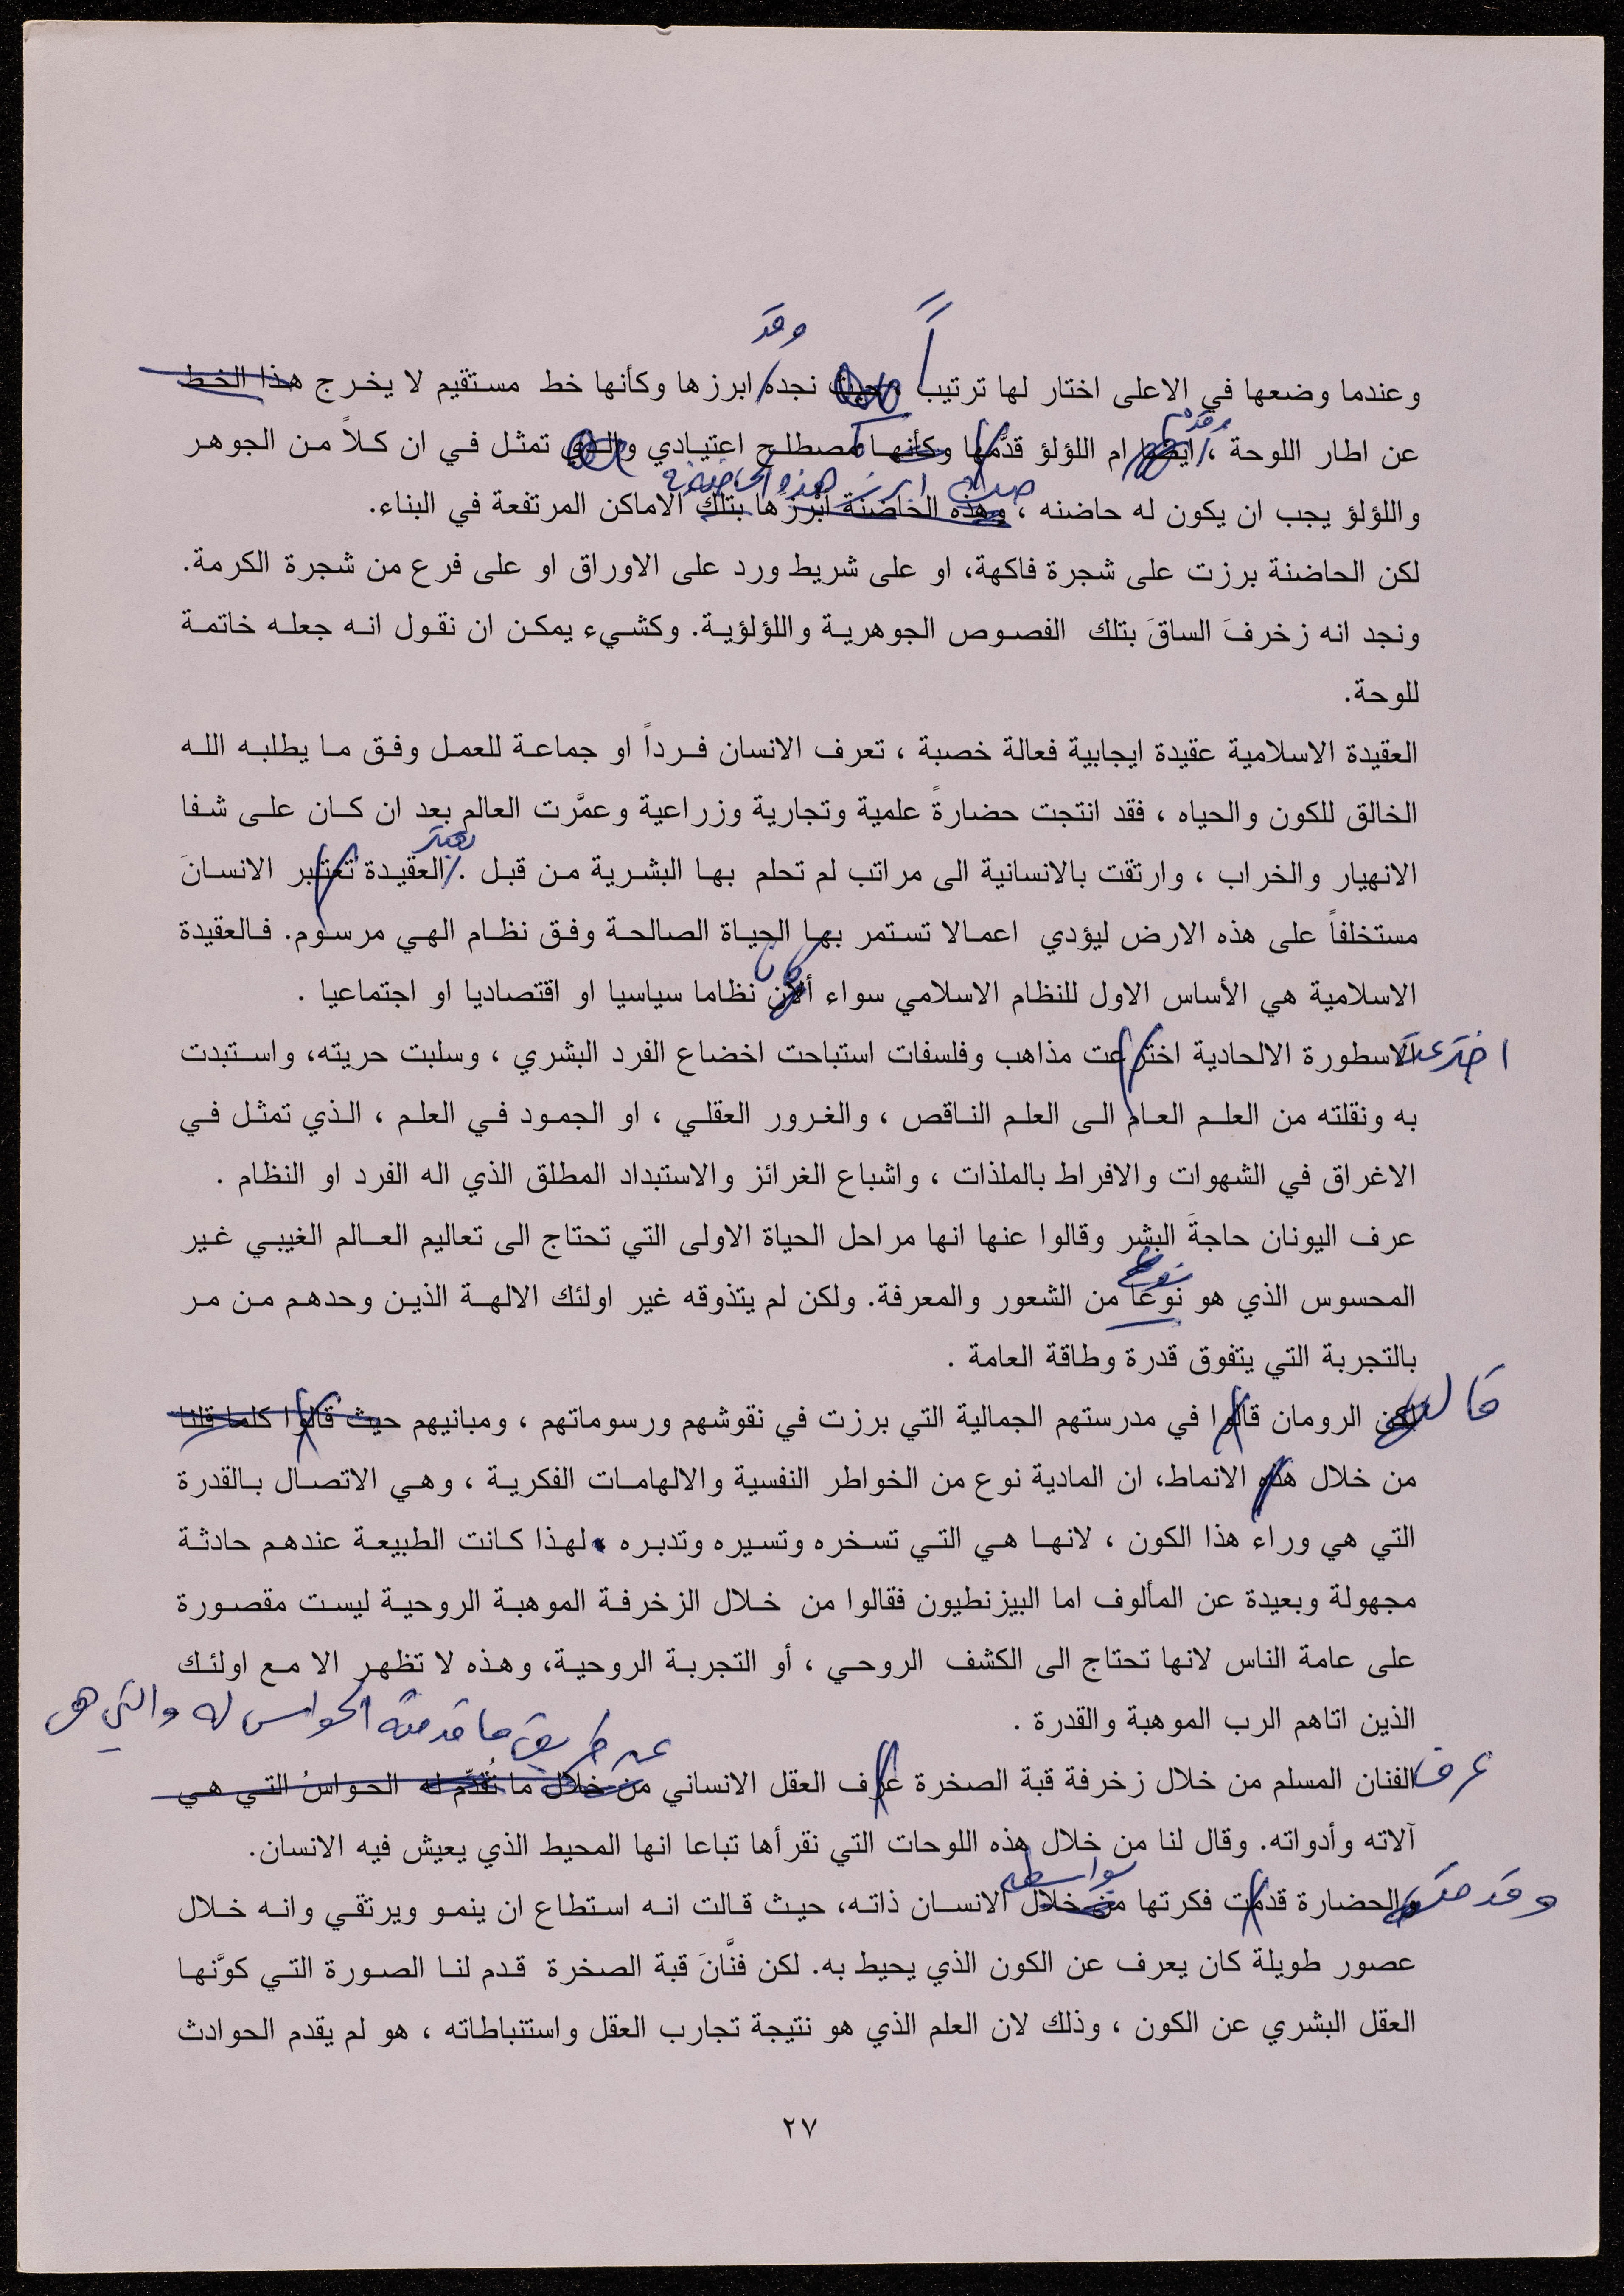 وقد
وعندما وضعها في الاعلى اختار لها ترتيباً حيث نجده ابرزها وكأنها خط مستقيم لا يخرج هذا الخط
وقدم
عن اطار اللوحة ، ايضا ام اللؤلؤ قدَّمها وكأنها مصطلح اعتيادي والذي تمثل في ان كلاً من الجوهر
هذه الحاضنة
واللؤلؤ يجب ان يكون له حاضنه ، وهذه الحاضنة أبرزها بتلك الاماكن المرتفعة في البناء.
لكن الحاضنة برزت على شجرة فاكهة، او على شريط ورد على الاوراق او على فرع من شجرة الكرمة.
ونجد انه زخرفَ الساقَ بتلك الفصوص الجوهرية واللؤلؤية. وكشيء يمكن ان نقول انه جعله خاتمة
للوحة.
العقيدة الاسلامية عقيدة ايجابية فعالة خصبة ، تعرف الانسان فرداً او جماعة للعمل وفق ما يطلبه الله
الخالق للكون والحياه ، فقد انتجت حضارةً علمية وتجارية وزراعية وعمَّرت العالم بعد ان كان على شفا
تعتبر
الانهيار والخراب ، وارتقت بالانسانية الى مراتب لم تحلم بها البشرية من قبل . العقيدة تعتبر الانسانَ
مستخلفاً على هذه الارض ليؤدي اعمالا تستمر بها الحياة الصالحة وفق نظام الهي مرسوم. فالعقيدة
كان
الاسلامية هي الأساس الاول للنظام الاسلامي سواء نظاما سياسيا او اقتصاديا او اجتماعيا .
اخترعت الاسطورة الالحادية اخترعت مذاهب وفلسفات استباحت اخضاع الفرد البشري ، وسلبت حريته، واستبدت
به ونقلته من العلم العام الى العلم الناقص ، والغرور العقلي ، او الجمود في العلم ، الذي تمثل في
الاغراق في الشهوات والافراط بالملذات ، واشباع الغرائز والاستبداد المطلق الذي اله الفرد او النظام .
عرف اليونان حاجةَ البشر وقالوا عنها انها مراحل الحياة الاولى التي تحتاج الى تعاليم العالم الغيبي غير
نوع
المحسوس الذي هو نوعا من الشعور والمعرفة. ولكن لم يتذوقه غير اولئك الالهة الذين وحدهم من مر
بالتجربة التي يتفوق قدرة وطاقة العامة .
قال لكن الرومان قالوا في مدرستهم الجمالية التي برزت في نقوشهم ورسوماتهم ، ومبانيهم حيث قالوا كلما قلنا
من خلال هذه الانماط، ان المادية نوع من الخواطر النفسية والالهامات الفكرية ، وهي الاتصال بالقدرة
التي هي وراء هذا الكون ، لانها هي التي تسخره وتسيره وتدبره ، لهذا كانت الطبيعة عندهم حادثة
مجهولة وبعيدة عن المألوف اما البيزنطيون فقالوا من خلال الزخرفة الموهبة الروحية ليست مقصورة
على عامة الناس لانها تحتاج الى الكشف الروحي ، أو التجربة الروحية، وهذه لا تظهر الا مع اولئك
الذين اتاهم الرب الموهبة والقدرة .
عن طريق ما قدمته الحواس له والتي هي
عرف الفنان المسلم من خلال زخرفة قبة الصخرة عرف العقل الانساني من خلال ما تُقدِّم له الحواسُ التي هي
آلاته وأدواته. وقال لنا من خلال هذه اللوحات التي نقرأها تباعا انها المحيط الذي يعيش فيه الانسان.
بواسطة
وقدمت والحضارة قدمت فكرتها من خلال الانسان ذاته، حيث قالت انه استطاع ان ينمو ويرتقي وانه خلال
عصور طويلة كان يعرف عن الكون الذي يحيط به. لكن فنَّانَ قبة الصخرة قدم لنا الصورة التي كوَّنها
العقل البشري عن الكون ، وذلك لان العلم الذي هو نتيجة تجارب العقل واستنباطاته ، هو لم يقدم الحوادث
٢٧